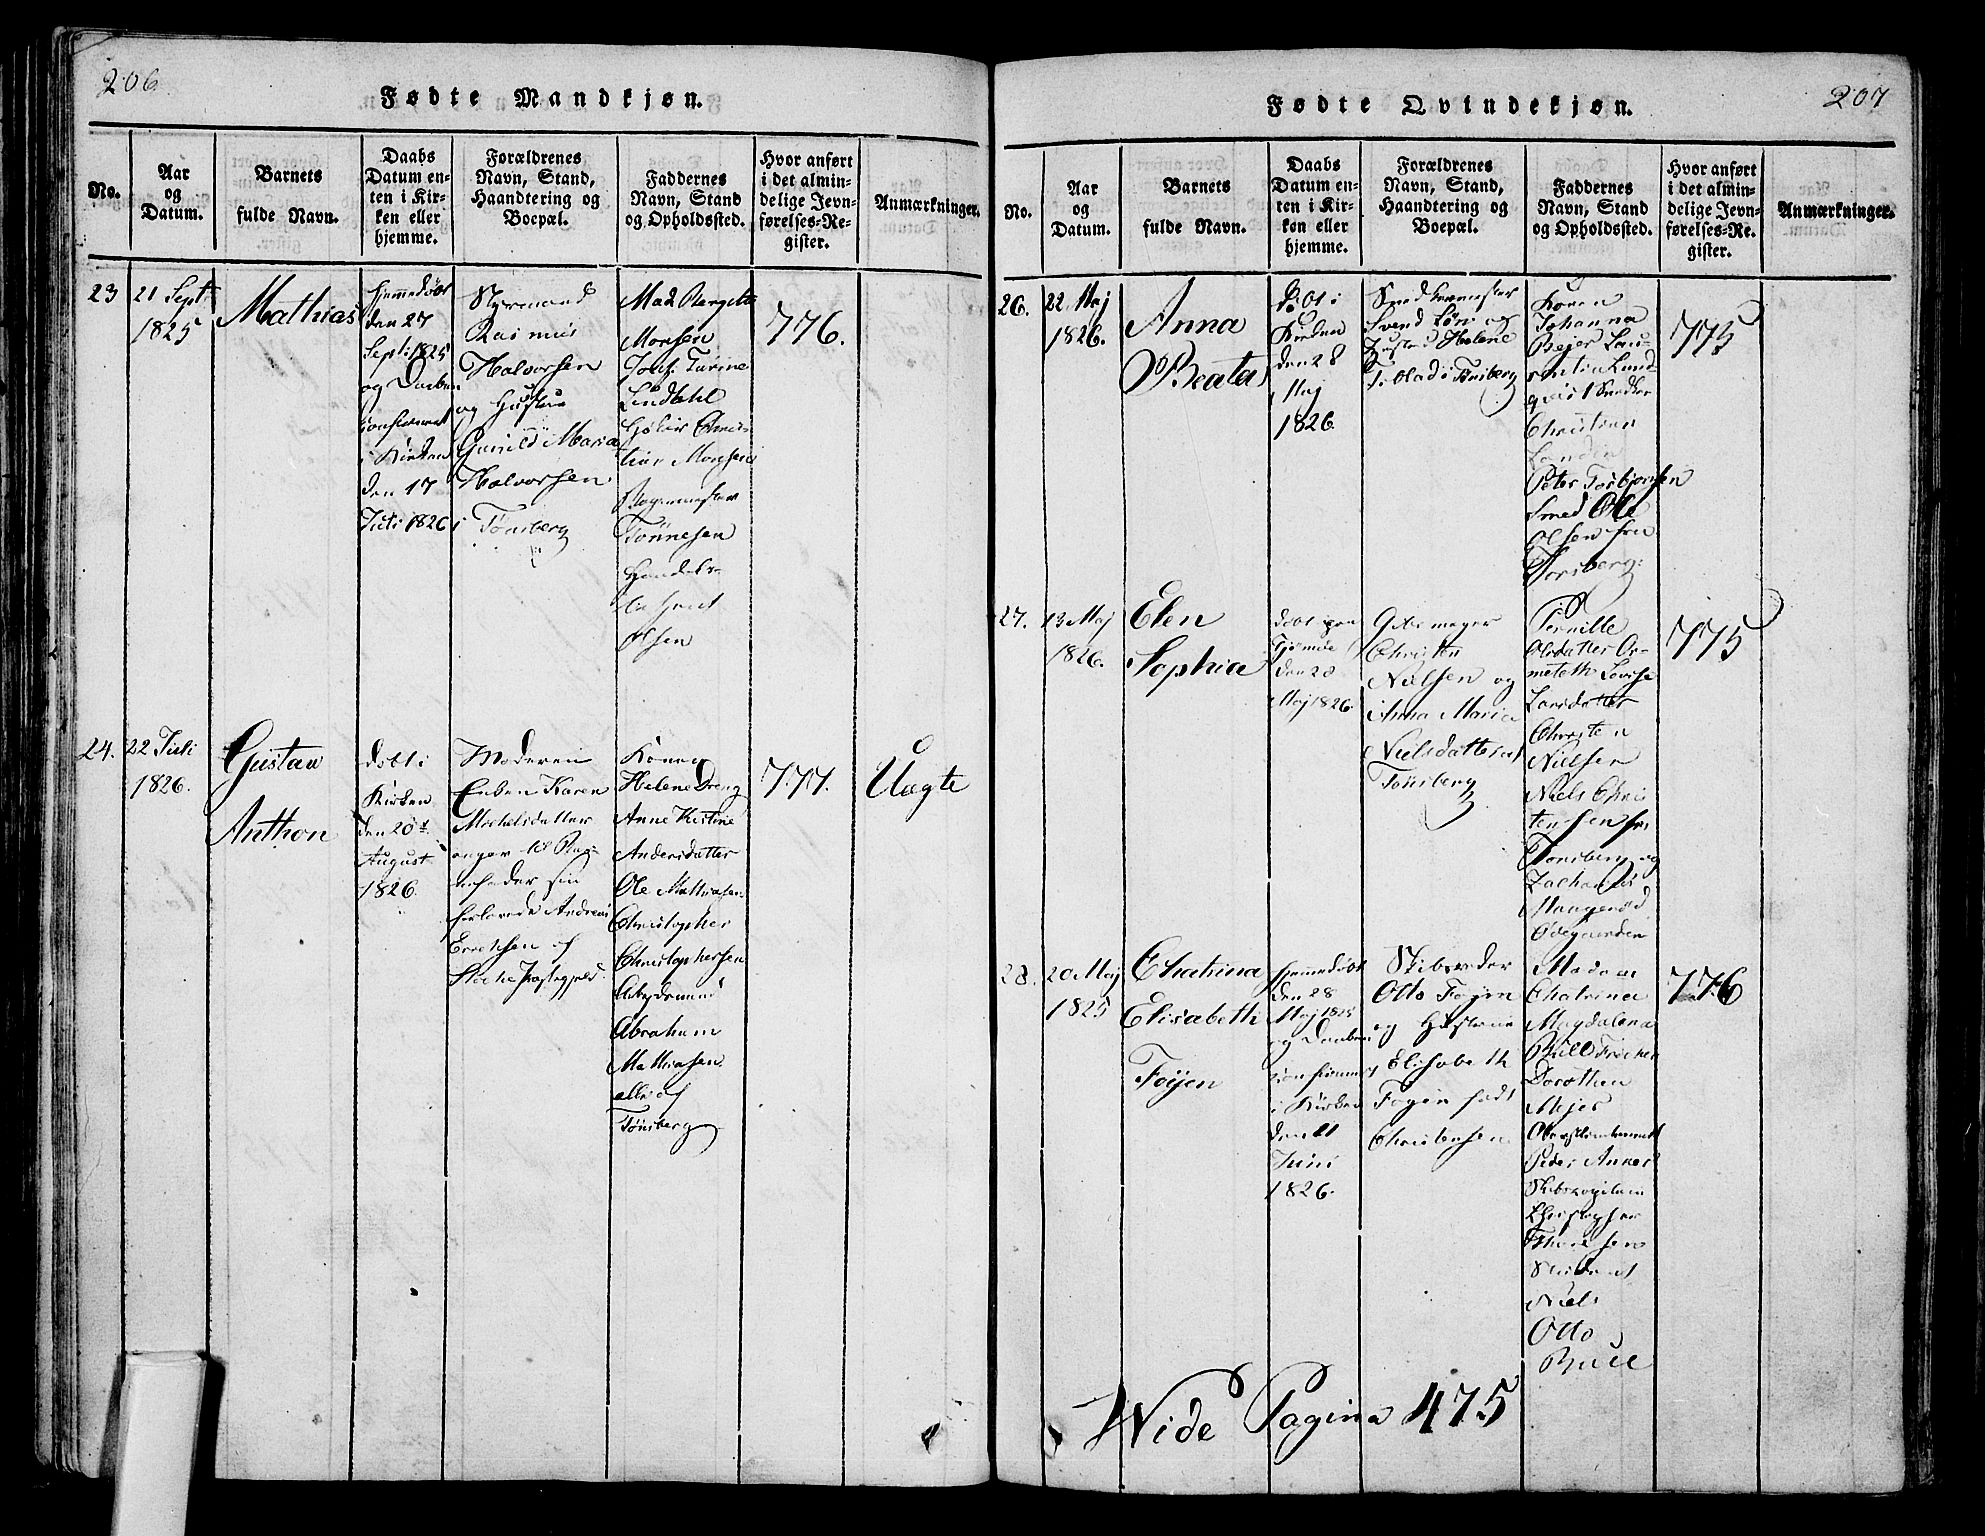 206
Fødte Mandkjøn.
No.
Aar
og
Datum.
Barnets
fulde Navn.
Daabs
Datum en-
ten i Kir-
ken eller
hjemme.
Forældrenes
Navn, Stand,
Haandtering og
Boepæl.
Faddernes
Navn, Stand
og Opholdssted.
Hvor anført
i det almin-
delige Jevn-
førelses-Re-
gister.
Anmærkninger.
23
21 Sept
1825
Mathias
Hjemmedøbt
den 27
Sept: 1825
og Daaben
confirmeret
i Kirken
den 17
Juli 1826
Styrmand
Rasmus
Halvorsen
og Hustrue
Gunild Maria
Halvorsen
i Tönsberg
Mad Bergette
Monsen
Jomf. Turine
Lindahl
Christian Monsen
Tönnesen
Olsen
776.
24.
22 Juli
1826.
Gustav
Anthon
døbt i
Kirken
den 20de
August
1826.
Moderen
Enken Karen
Michelsdatter
angav til
sin
forlovede Andreas
Ericksen af
Stocke Præstegjeld
Konen
Helene Dreng
Anne Kistine
Andersdatter
Ole Mathiasen
Christopher
Christophersen
Arbejdsmand
Abraham
Mathiasen
alle af
Tönsberg
777.
Uægte
207
Fødte Qvindekjøn.
No.
Aar
og
Datum.
Barnets
fulde Navn.
Daabs
Datum en-
ten i Kir-
ken eller
hjemme.
Forældrenes
Navn, Stand,
Haandtering og
Boepæl.
Faddernes
Navn, Stand
og Opholdssted.
Hvor anført
i det almin-
delige Jevn-
førelses-Re-
gister.
Anmærkninger.
26.
22 Maj
1826.
Anna
Beata
Døbt i
Kirken
den 28
Maj
1826
Svend
Hustru Helene
i Tønsberg
Konen
Johanna
Bejer
Christian
Peter Torbjonsen
Smed Ole
Olsen fra
Tonsberg:
775
27.
13 Maj
1826.
Elen
Sophia
døbt paa
Tjömöe
den 20
Maj 1826.
Christen
Nielsen og
Anna Maria
Nielsdatter af
Tönsberg
Pernille
Olsdatter
Lovise
Larsdatter
Christen
Nielsen
Niels Chris
tensen fra
Tonsberg og
Zacharias
Ødegaarden
775
28.
20 Maj
1825
Chatrina
Elisabeth
Foyen
Hjemmedøbt
den 28
Maj 1825
og Daaben
confirmeret
i Kirken
den 11
Juni
1826.
Skibsreder
Otto Foyen
og Hustrue
Elisabeth
Foyen født
Christensen
Madam
Chatrina
Magdalena
Bull Frøken
Dorothea
Mejer
Peder Anker
Skibscapitain
Christopher
Thoresen
Student
Niels
Otto
Bull
776
Wide Pagina 475